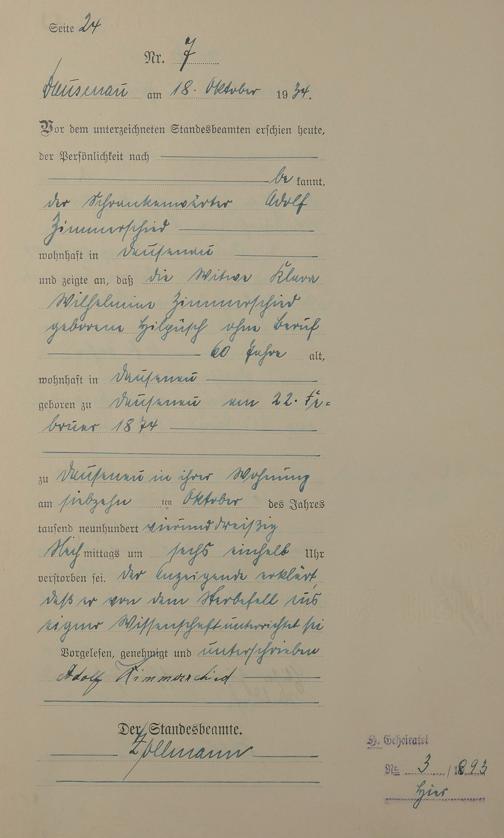 Seite 24
Nr. 7
Dausenau am 18. Oktober 1934.
Vor dem unterzeichneten Standesbeamten erschien heute,
der Persönlichkeit nach
bekannt,
der Schrankenwärter Adolf
Zimmerschied
wohnhaft in Dausenau
und zeigte an, daß die Witwe Klara
Wilhelmine Zimmerschied
geborene Hilgüsch ohne Beruf
60 Jahre alt,
wohnhaft in Dausenau
geboren zu Dausenau am 22. Fe=
bruar 1874
zu Dausenau in ihrer Wohnung
am siebzehn ten Oktober des Jahres
tausend neunhundert vierunddreißig
Nachmittags um sechs einhalb Uhr
verstorben sei. Der Anzeigende erklärt,
daß er von dem Sterbefall aus
eigner Wissenschaft unterrichtet sei
Vorgelesen, genehmigt und unterschrieben
Adolf Zimmerschied
Der Standesbeamte.
Zollmann
H. Geheiratet
Nr. 3 / 1893
hier